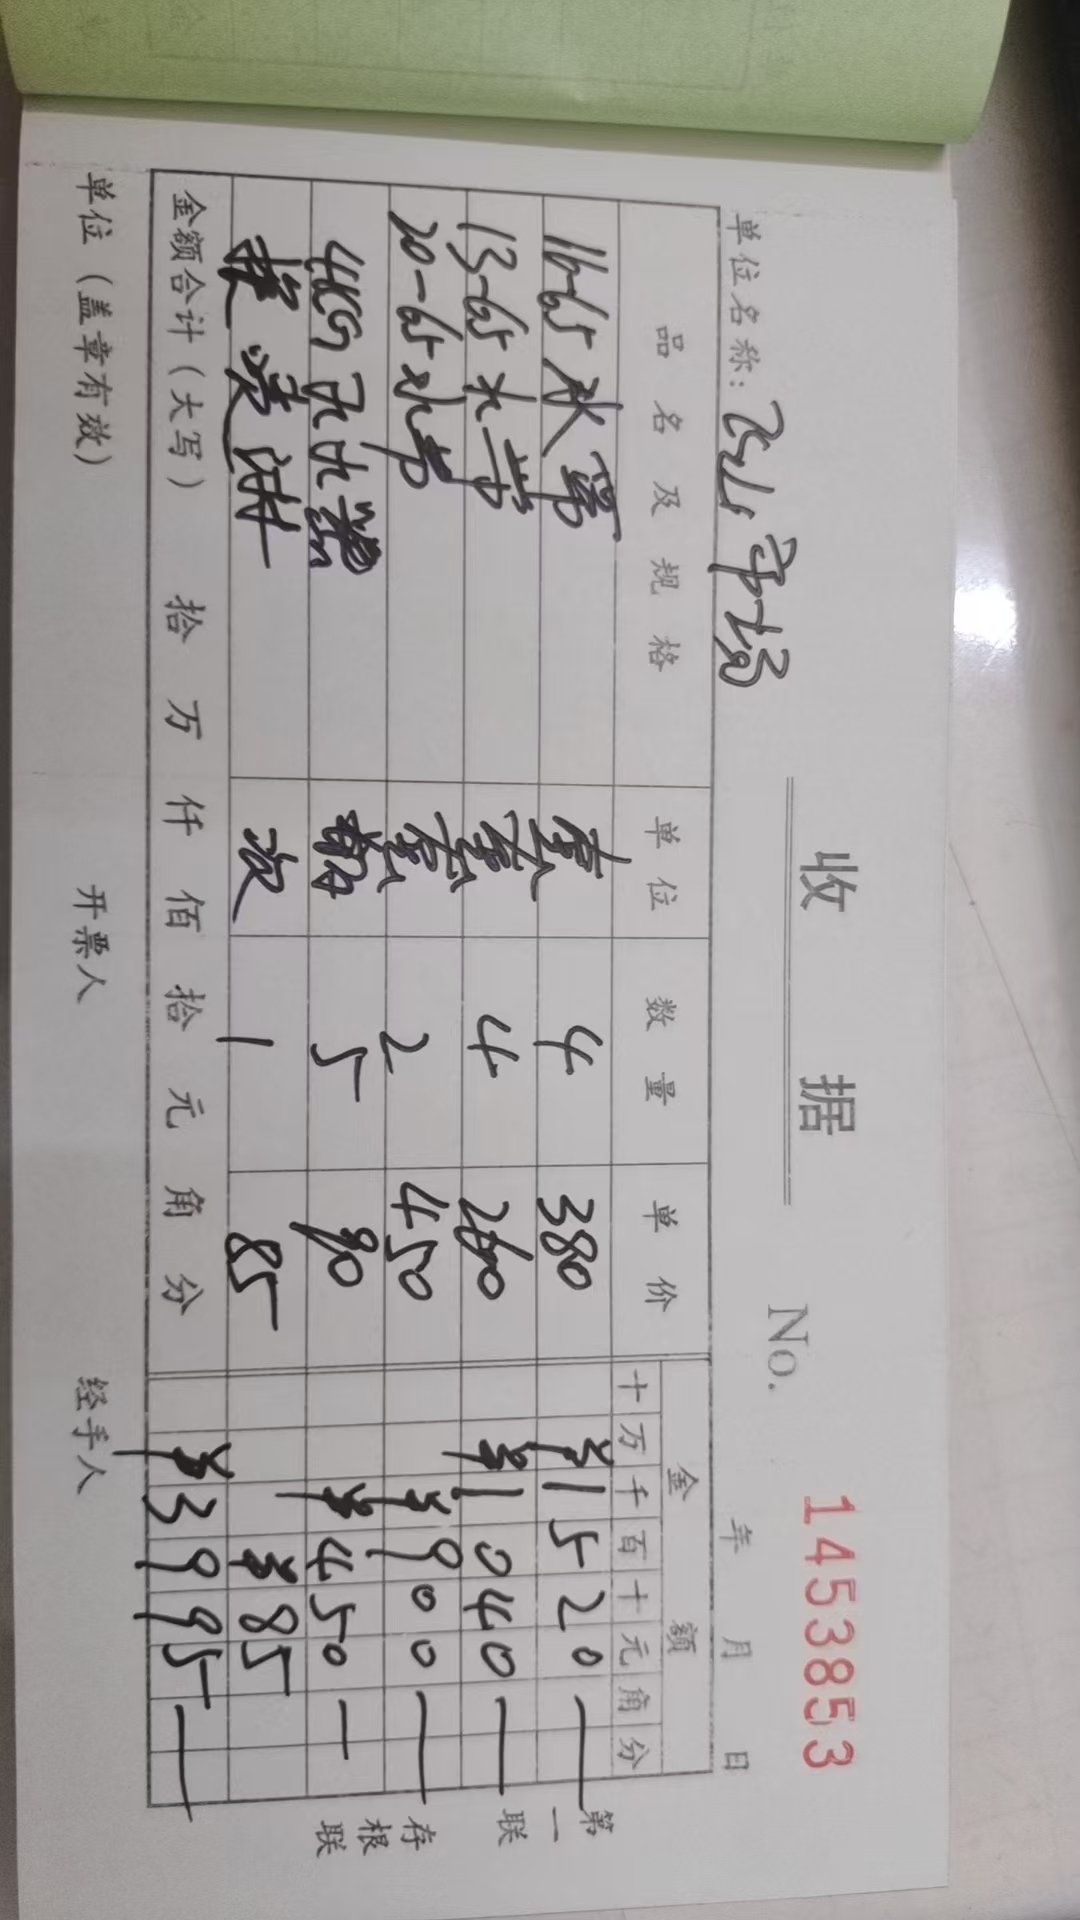 收 据
No. 1453853
单位名称: 飞山市场 年 月 日
品名及规格 单位 数量 单价 金额
十 万 千 百 十 元 角 分
16-65水带 套 4 380 ¥1520—
13-65水带 套 4 260 ¥1040—
20-65水带 套 2 450 ¥900—
4KG灭火器 5 90 ¥450—
喷淋 次 1 85 ¥85
金额合计(大写) 拾 万 仟 佰 拾 元 角 分 ¥3995—
单位(盖章有效) 开票人 经手人
第一联 存根联